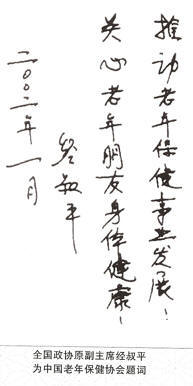 推动老年保健事业发展！
关心老年朋友身体健康！
经叔平
二〇〇二年一月
全国政协原副主席经叔平
为中国老年保健协会题词